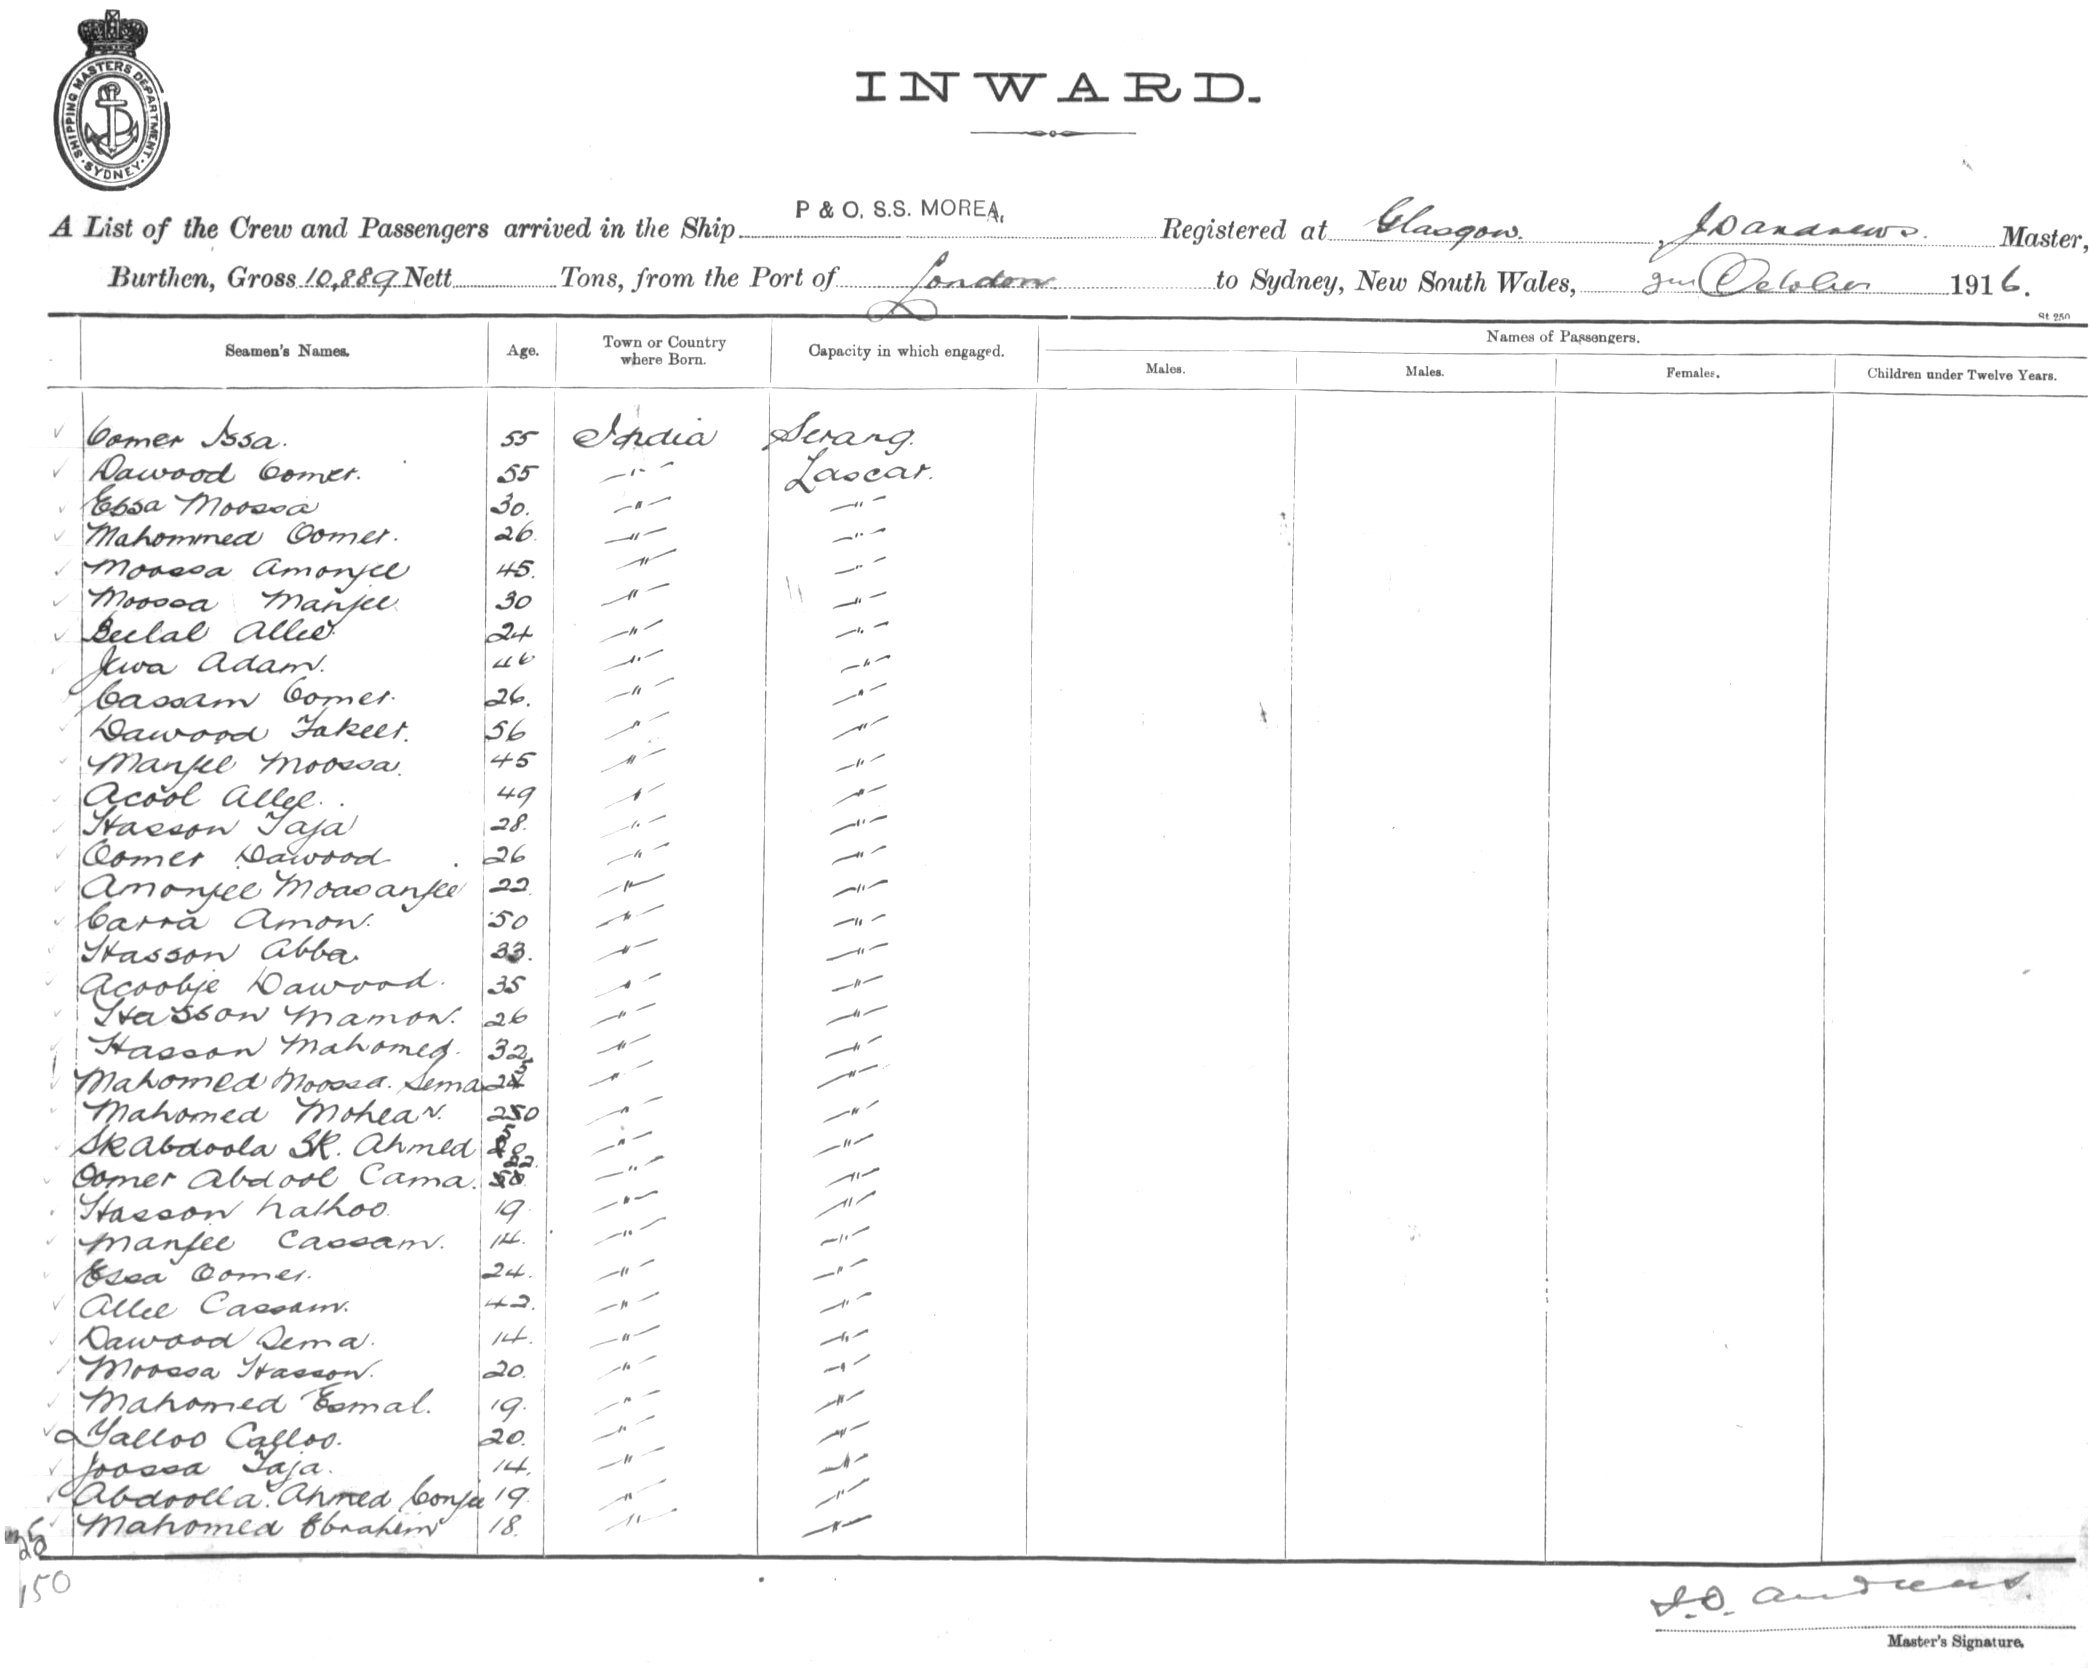 SHIPPING MASTERS DEPARTMENT
SYDNEY
INWARD.
A List of the Crew and Passengers arrived in the Ship P & O. S.S. MOREA, Registered at Glasgow. , J D Andrews. Master,
Burthen, Gross 10,889 Nett Tons, from the Port of London to Sydney, New South Wales, October 1916.
St 250
Seamen's Names. Age. Town or Country where Born. Capacity in which engaged. Names of Passengers.
Males. Males. Females. Children under Twelve Years.
Oomer Issa. 55 India Serang.
Dawood Oomer. 55 -"- Lascar.
Essa Moossa 30. -"- -"-
Mahommed Oomer. 26. -"- -"-
Moossa Amonjee 45. -"- -"-
Moossa Manjee 30 -"- -"-
Beelal Allee. 24 -"- -"-
Jiwa Adam. 46 -"- -"-
Cassam Oomer. 26. -"- -"-
Dawood Fakeer. 56 -"- -"-
Manjee Moossa. 45 -"- -"-
Acool Allee. 49 -"- -"-
Hasson Taja 28. -"- -"-
Oomer Dawood 26 -"- -"-
Amonjee Moosanjee 22. -"- -"-
Carra Amon. 50 -"- -"-
Hasson Abba. 33. -"- -"-
Acoobje Dawood. 35 -"- -"-
Hasson Mamon. 26 -"- -"-
Hasson Mahomed. 32. -"- -"-
Mahomed Moossa. Sema -"- -"-
Mahomed -"- -"-
Sk Abdoola SK. Ahmed -"- -"-
Oomer Abdool Cama. -"- -"-
Hasson Nathoo 19. -"- -"-
Manjee Cassam. 14. -"- -"-
Essa Oomer. 24. -"- -"-
Allee Cassam. 42. -"- -"-
Dawood Sema. 14. -"- -"-
Moossa Hasson. 20. -"- -"-
Mahomed Esmal. 19. -"- -"-
Yalloo Calloo. 20. -"- -"-
Joossa Taja. 14. -"- -"-
Abdoolla. Ahmed Conjee 19 -"- -"-
Mahomed Ebrahim 18. -"- -"-
150
J.D. Andrews.
Master's Signature.